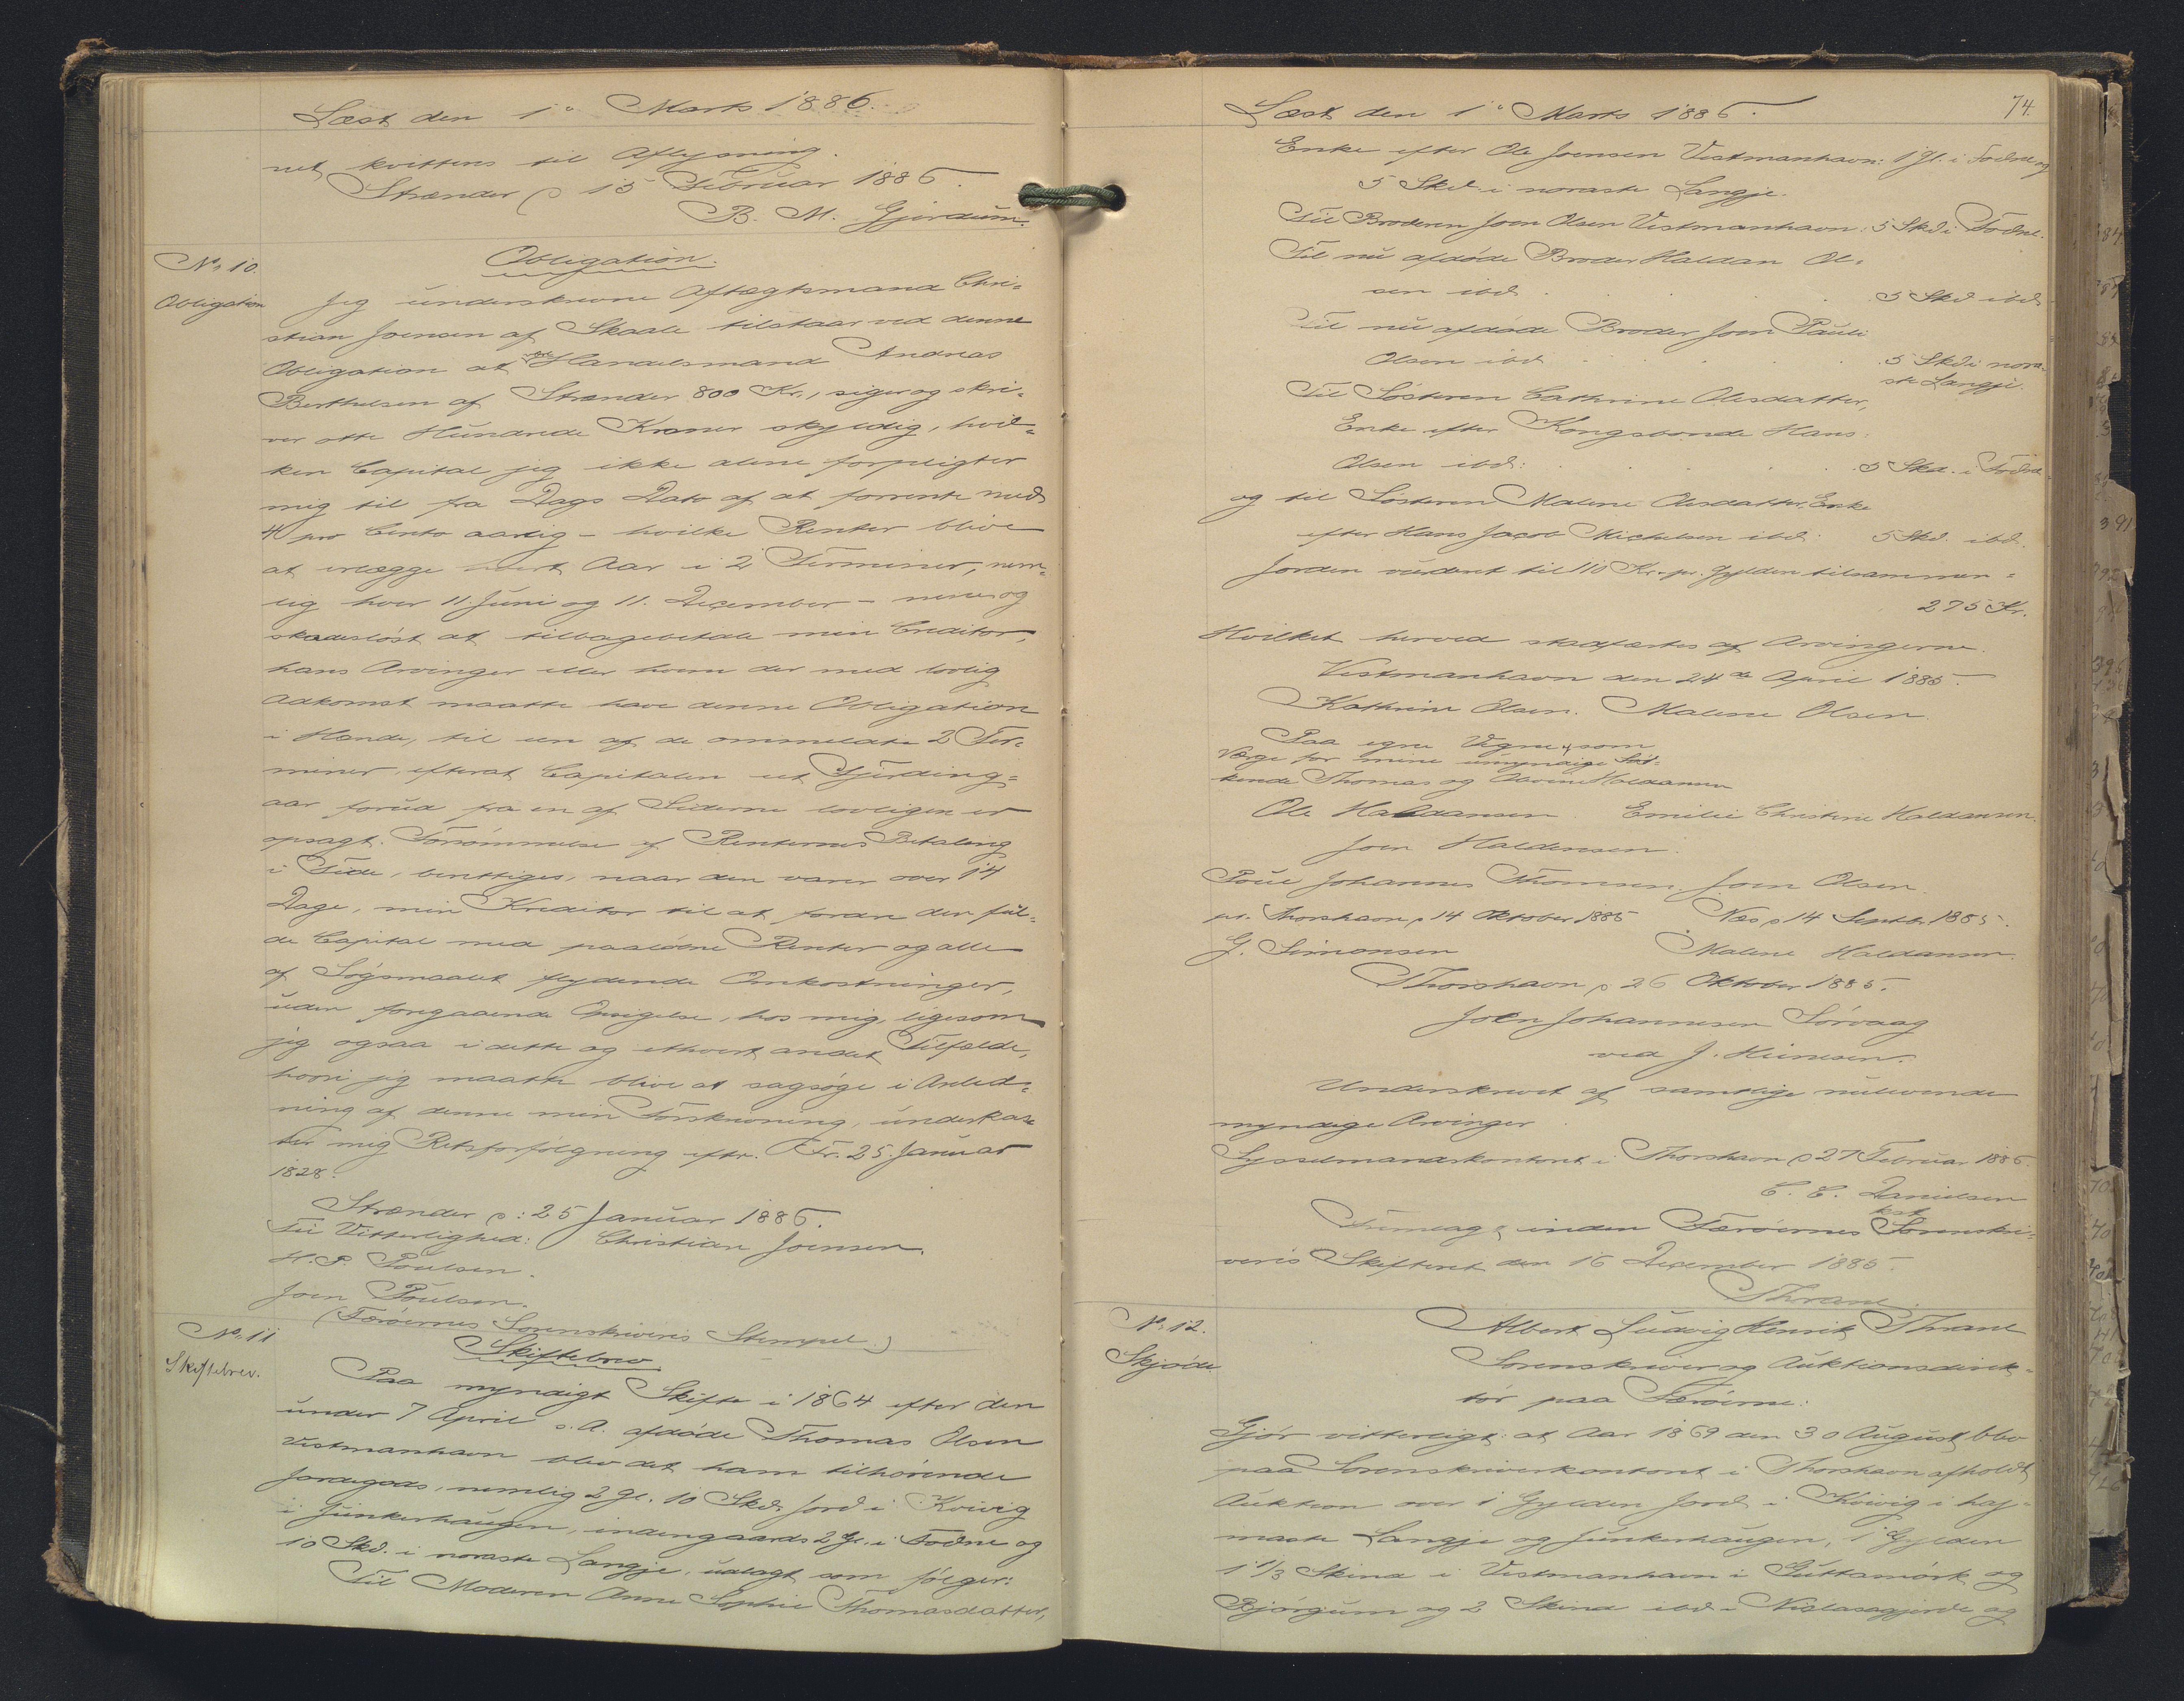 Læst den 1ᵗᵉ Marts 1886.
ret kvitteres til Aflysning.
Strænder p 15 Februar 1886.
B. M. Gjerdum.
No. 10.
Obligation
Obligation.
Jeg underskrevne Aftægtsmand Chri-
stian Joensen af Skaale tilstaar ved denne
Obligation at være Handelsmand Andreas
Berthelsen af Strænder 800 Kr., siger og skri-
ver otte Hundrede Kroner skyldig, hvil-
ken Capital jeg ikke alene forpligter
mig til fra Dags Dato af at forrente med
4 pro Cento aarlig – hvilke Renter blive
at erlægge hvert Aar i 2 Terminer, nem-
lig hver 11 Juni og 11. December – men og
skadesløst at tilbagebetale min Creditor,
hans Arvinger eller hvem der med lovlig
Adkomst maatte have denne Obligation
i Hænde, til een af de ommeldte 2 Ter-
miner, efterat Capitalen et Fjerding-
aar forud fra en af Siderne lovligen er
opsagt. Forsømmelse af Renternes Betaling
i Tide, berettiges, naar den varer over 14
Dage, min Kreditor til at fordre den ful-
de Capital med paaløbne Renter og alle
af Søgsmaalet flydende Omkostninger,
uden foregaaende Opsigelse, hos mig, ligesom
jeg ogsaa i dette og ethvert andet Tilfælde,
hvori jeg maatte blive at sagsøge i Anled-
ning af denne min Forskrivning, underkas-
ter mig Retsforfølgning eftr. Fr. 25. Januar
1828.
Strænder p: 25 Januar 1886.
Til Vitterlighed: Christian Joensen.
H. P. Poulsen.
Joen Poulsen.
(Færøernes Sorenskriveris Stempel.)
No. 11
Skiftebrev.
Skiftebrev.
Paa myndigt Skifte i 1864 efter den
under 7 April s. A. afdøde Thomas Olsen
Vestmanhavn blev det ham tilhørende
Jordegods, nemlig 2 Gl. 10 Skd. Jord i Kvivig
i Junkerhaugen, indengaards 2 Gl. i Todne og
10 Skd. i noraste Langje, udlagt som følger:
Til Moderen Anne Sophie Thomasdatter,
Læst den 1ᵗᵉ Marts 1886.
74.
Enke efter Ole Joensen Vestmanhavn: 1 Gl. i Todne og
5 Skd. i noraste Langje.
Til Broderen Joen Olsen Vestmanhavn: 5 Skd. i Todne.
Til nu afdøde Broder Haldan Ol-
sen ibd. . . . 5 Skd. ibd.
Til nu afdøde Broder Joen Pauli
Olsen ibd. . . . 5 Skd. i nora-
ste Langje.
Til Søsteren Cathrine Olesdatter,
Enke efter Kongsbonde Hans
Olsen ibd: . . . 5 Skd. i Todne
og til Søsteren Malene Olesdatter, Enke
efter Hans Jacob Michelsen ibd. 5 Skd. ibd.
Jorden vurderet til 110 Kr. pr. Gylden tilsammen =
275 Kr.
Hvilket herved stadfæstes af Arvingerne.
Vestmanhavn den 24de April 1885.
Kathrine Olsen. Malene Olsen.
Paa egne Vegne & som
Værge for mine umyndige Søs-
kende Thomas og Haldansen
Ole Haldansen. Emilie Christine Haldansen.
Joen Haldansen.
Poul Johannes Thomsen. Joen Olsen.
pt. Thorshavn p 14 Oktober 1885 Næs p 14 Septbr. 1885.
G. Simonsen Malene Haldansen.
Thorshavn p 26 Oktober 1885.
Joen Johannesen Sørvaag
ved J. Heinesen.
Underskrevet af samtlige nulevende
myndige Arvinger.
Sysselmandskontoret i Thorshavn p 27 Februar 1886.
C. C. Danielsen
kst
Fremlagt inden Færøernes Sorenskri-
veris Skifteret den 16 December 1885.
Thrane
No. 12.
Skjøde.
Albert Ludvig Henrik Thrane
Sorenskriver og Auktionsdirek-
tør paa Færøerne:
Gjør vitterligt: at Aar 1869 den 30 August blev
paa Sorenskriverkontoret i Thorshavn afholdt
Auktion over 1 Gylden Jord i Kvivig i hej-
maste Langje og Junkerhaugen, 1 Gylden
1 1/3 Skind i Vestmanhavn i og
Bjørgum og 2 Skind ibd. i Niclasagjerde og